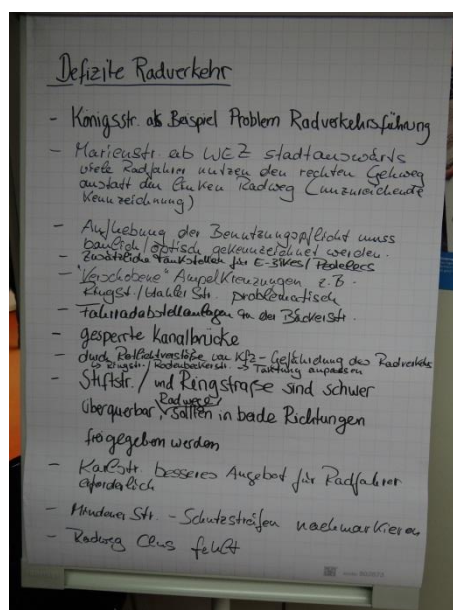 Defizite Radverkehr
- Königsstr. als Beispiel Problem Radverkehrsführung
- Marienstr. ab WEZ stadtauswärts
viele Radfahrer nutzen den rechten Gehweg
anstatt den linken Radweg (unzureichende
Kennzeichnung)
- Aufhebung der Benutzungspflicht muss
baulich/optisch gekennzeichnet werden.
- Zusätzliche Tankstellen für E-Bikes/Pedelecs
- "Verschobene" Ampelkreuzungen z.B.
Ringstr./Stahler Str. problematisch
- Fahrradabstellanlagen an der Bäckerstr.
- gesperrte Kanalbrücke
- durch Rotlichtverstöße von Kfz - Gefährdung des Radverkehrs
↳ Ringstr./Kodenbeckerstr. → Taktung anpassen
- Stiftstr./ und Ringstraße sind schwer
Radwege
überquerbar, sollten in beide Richtungen
freigegeben werden
- Karlstr. besseres Angebot für Radfahrer
erforderlich
- Mindener Str. - Schutzstreifen nachmarkieren
- Radweg Clus fehlt